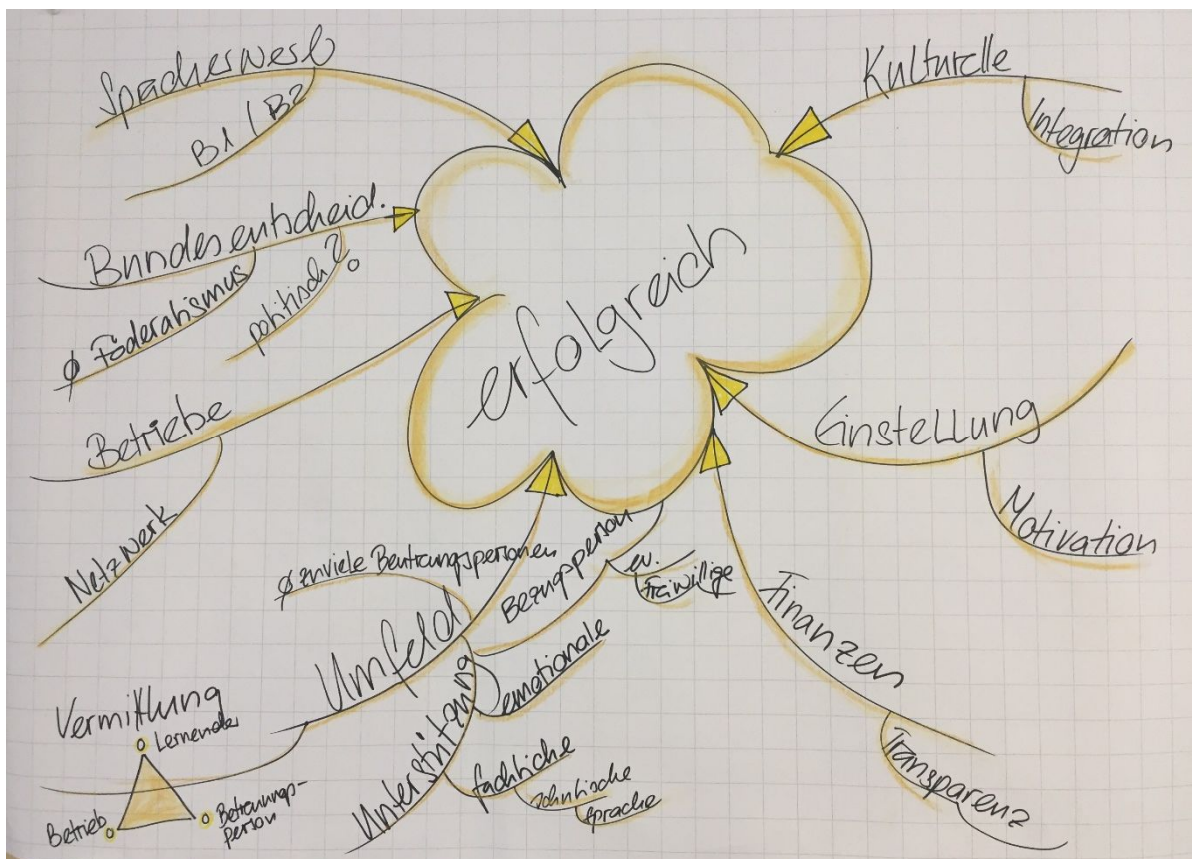 Spracherwerb
B1 / B2
Bundesentscheid.
ø Föderalismus
politisch?
Betriebe
Netzwerk
erfolgreich
Kulturelle
Integration
Einstellung
Motivation
Finanzen
Transparenz
Umfeld
ø zuviele Betreuungspersonen
Bezugsperson
ev.
Freiwillige
Unterstützung
emotionale
fachliche
schulische
Sprache
Vermittlung
Lernender
Betrieb
Betreuungs-
person